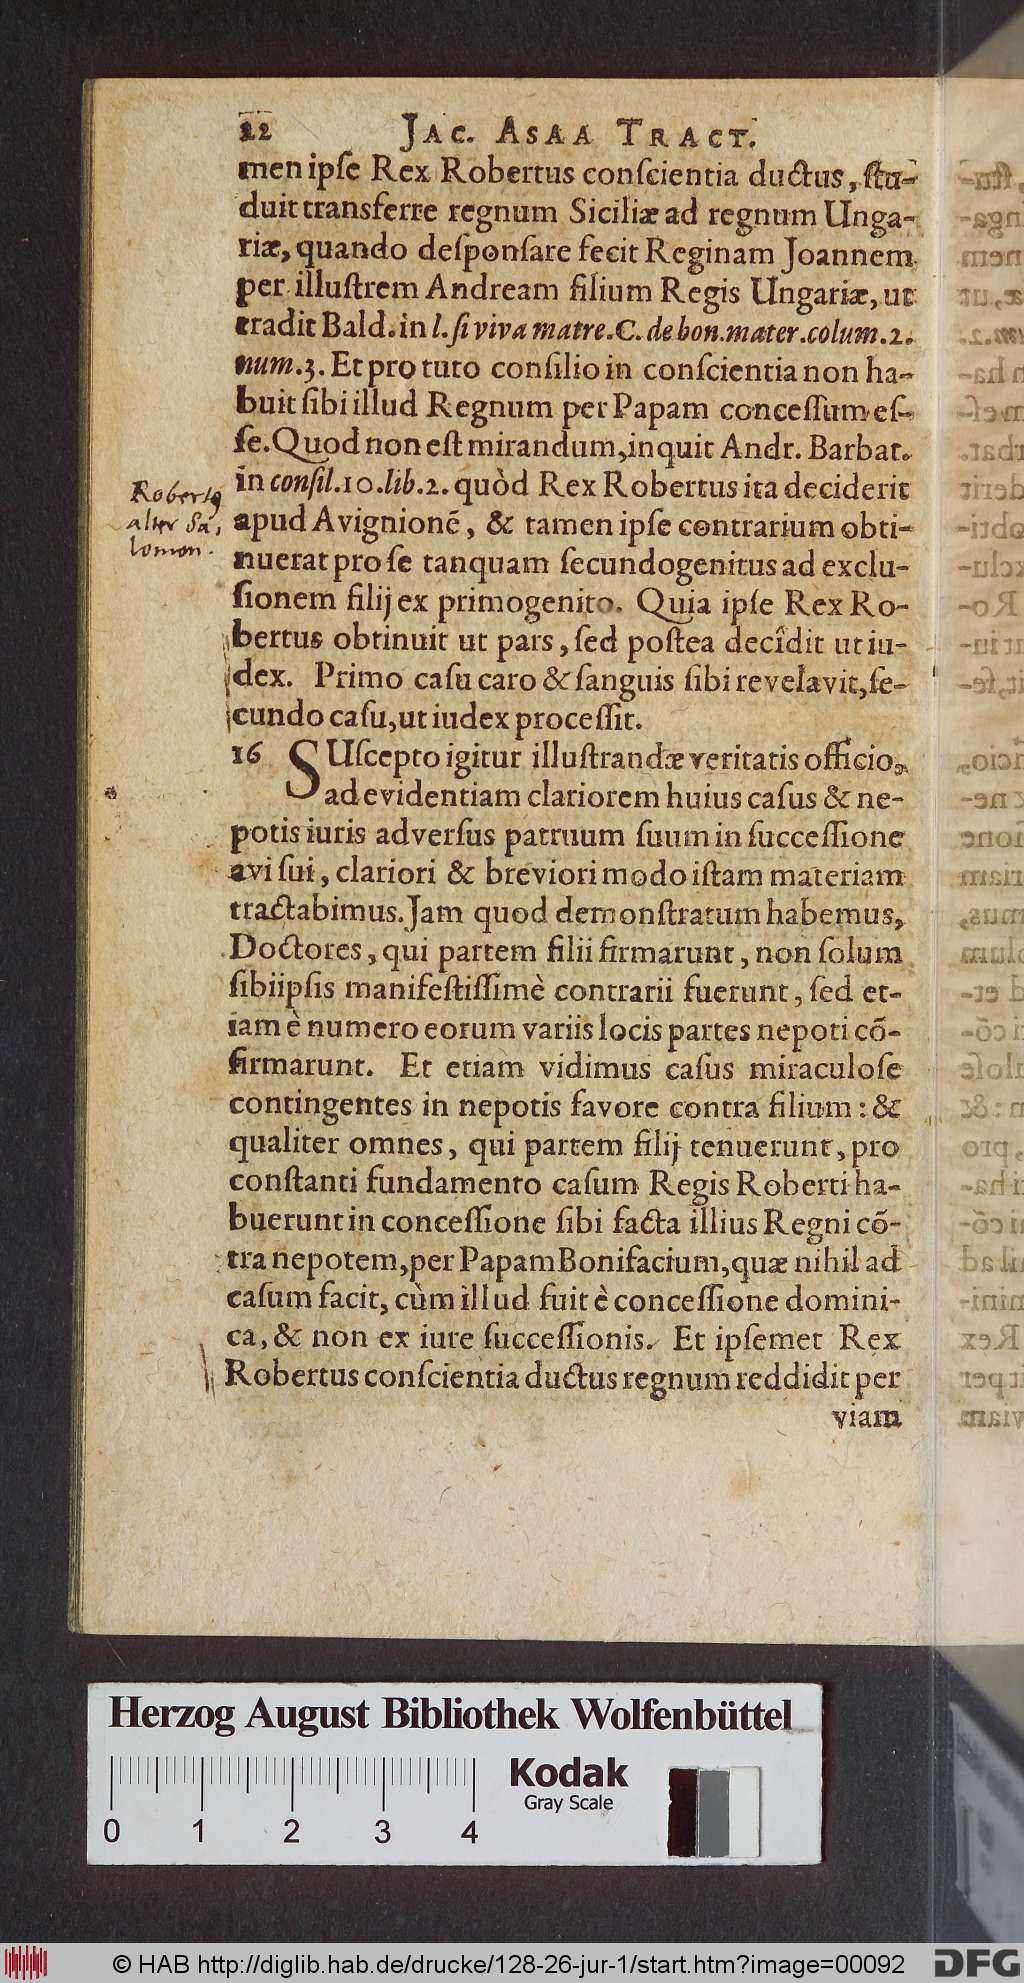 22 JAC. ASAA TRACT.
men ipſe Rex Robertus conſcientia ductus, ſtu-
duit transferre regnum Siciliæ ad regnum Unga-
riæ, quando deſponſare fecit Reginam Joannem
per illuſtrem Andream filium Regis Ungariæ, ut
tradit Bald. in l. ſi viva matre. C. de bon. mater. colum. 2.
num. 3. Et pro tuto conſilio in conſcientia non ha-
buit ſibi illud Regnum per Papam conceſſum eſ-
ſe. Quod non eſt mirandum, inquit Andr. Barbat.
in conſil. 10. lib. 2. quòd Rex Robertus ita deciderit
apud Avignionē, & tamen ipſe contrarium obti-
nuerat pro ſe tanquam ſecundogenitus ad exclu-
ſionem filij ex primogenito. Quia ipſe Rex Ro-
bertus obtinuit ut pars, ſed poſtea decîdit ut iu-
dex. Primo caſu caro & ſanguis ſibi revelavit, ſe-
cundo caſu, ut iudex proceſſit.
Robertꝰ
alter Sa,
lomon.
16 SUſcepto igitur illuſtrandæ veritatis officio,
ad evidentiam clariorem huius caſus & ne-
potis iuris adverſus patruum ſuum in ſucceſſione
avi ſui, clariori & breviori modo iſtam materiam
tractabimus. Jam quod demonſtratum habemus,
Doctores, qui partem filii firmarunt, non ſolum
ſibiipſis manifeſtiſſimè contrarii fuerunt, ſed et-
iam è numero eorum variis locis partes nepoti cō-
firmarunt. Et etiam vidimus caſus miraculoſe
contingentes in nepotis favore contra filium: &
qualiter omnes, qui partem filij tenuerunt, pro
conſtanti fundamento caſum Regis Roberti ha-
buerunt in conceſſione ſibi facta illius Regni cō-
tra nepotem, per Papam Bonifacium, quæ nihil ad
caſum facit, cùm illud fuit è conceſſione domini-
ca, & non ex iure ſucceſſionis. Et ipſemet Rex
Robertus conſcientia ductus regnum reddidit per
viam
Herzog August Bibliothek Wolfenbüttel
Kodak
Gray Scale
0 1 2 3 4
© HAB http://diglib.hab.de/drucke/128-26-jur-1/start.htm?image=00092
DFG